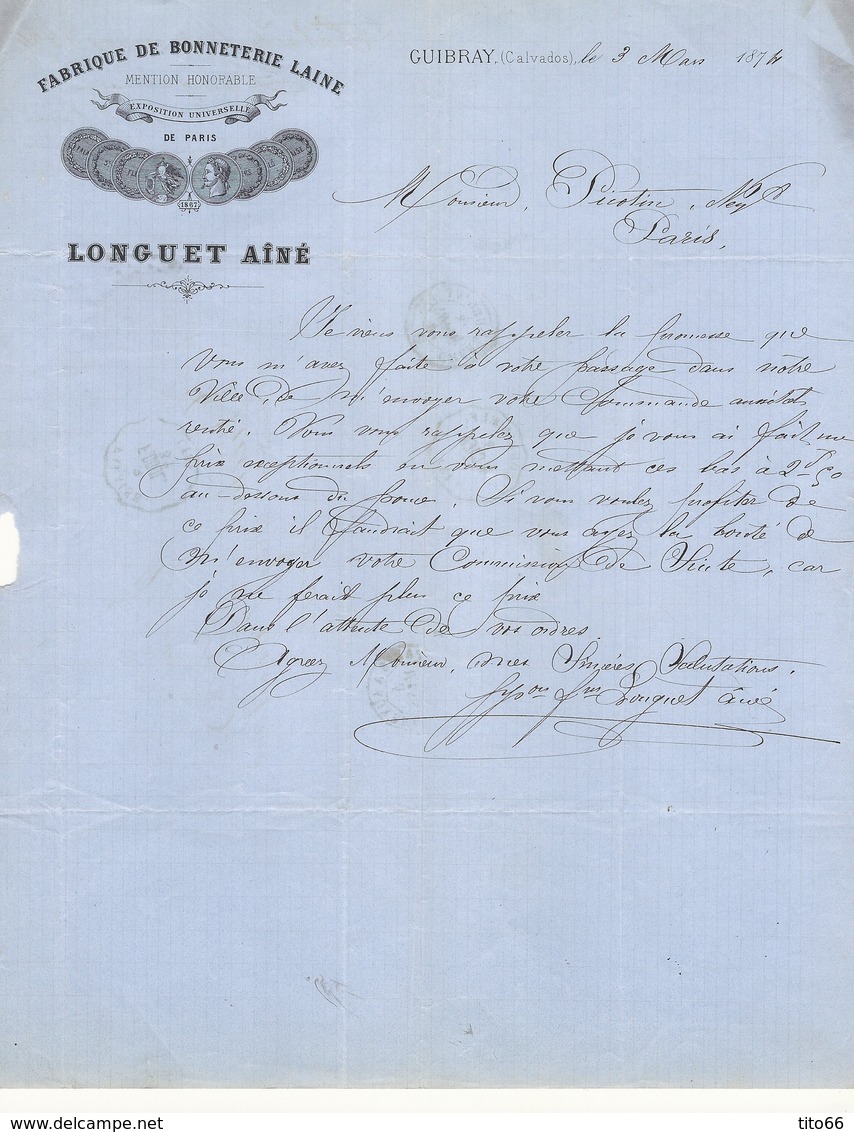 FABRIQUE DE BONNETERIE LAINE
MENTION HONORABLE
EXPOSITION UNIVERSELLE
DE PARIS
1867
LONGUET AÎNÉ
GUIBRAY, (Calvados), le 3 Mars 1874
Monsieur, Picotin, Negt
Paris,
Je viens vous rappeler la promesse que
vous m'avez faite à votre passage dans notre
Ville, de m'envoyer votre Commande aussitot
rentré. Vous vous rappelez que je vous ai fait un
prix exceptionnels en vous mettant ces bas à 2f 50
au-dessous du pouce. Si vous voulez profiter de
ce prix il faudrait que vous ayez la bonté de
m'envoyer votre Commission de Suite, car
je ne ferait plus ce prix
Dans l'attente de vos ordres
Agréez Monsieur, mes Sincères Salutations.
Longuet Ainé
delcampe.net
tito66